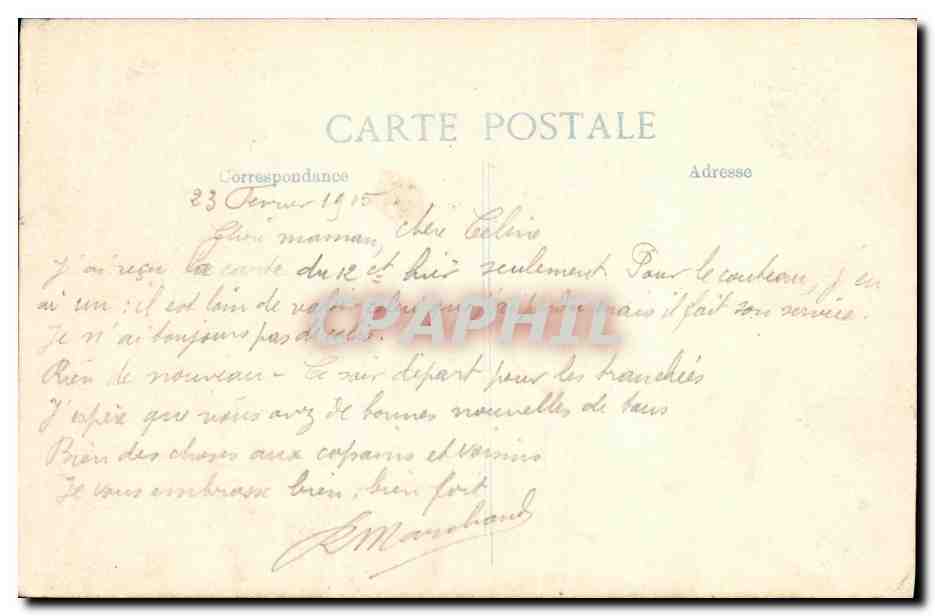 CARTE POSTALE
Correspondance
Adresse
23 Fevrier 1915
Chère maman, chère Céline
J'ai reçu la carte du 12 et hier seulement. Pour le couteau, j'en
ai un : il est loin de valoir celui mais il fait son service.
Je n'ai toujours pas de
Rien de nouveau - Ce soir départ pour les tranchées
J'espère que vous avez de bonnes nouvelles de tous
Bien des choses aux copains et voisins
Je vous embrasse bien, bien fort
Marchand
CPAPHIL